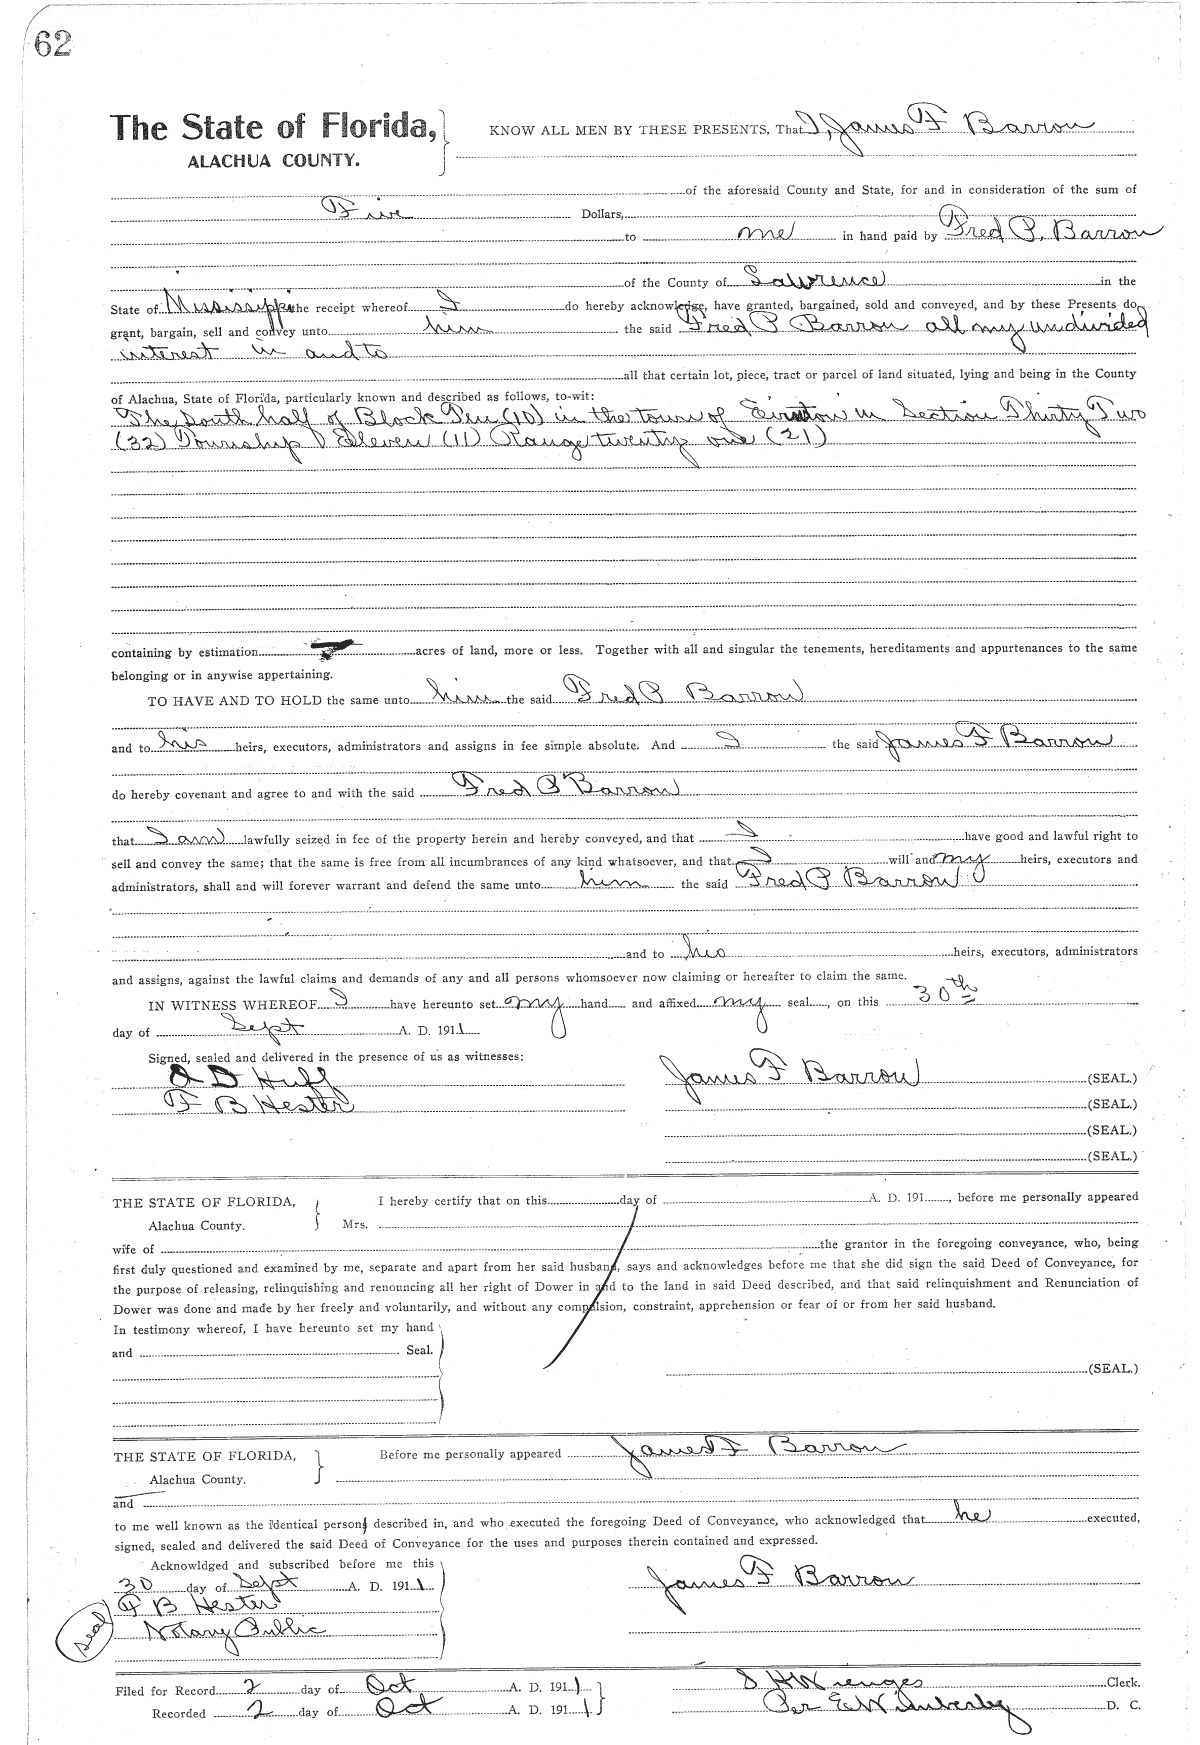 62
The State of Florida, KNOW ALL MEN BY THESE PRESENTS, That I, James F Barron
ALACHUA COUNTY.
of the aforesaid County and State, for and in consideration of the sum of
Five Dollars,
to me in hand paid by Fred P. Barron
of the County of Lawrence in the
State of Mississippi the receipt whereof I do hereby acknowledge, have granted, bargained, sold and conveyed, and by these Presents do
grant, bargain, sell and convey unto him the said Fred P Barron all my undivided
interest in and to
all that certain lot, piece, tract or parcel of land situated, lying and being in the County
of Alachua, State of Florida, particularly known and described as follows, to-wit:
The South half of Block Ten (10) in the town of in Section Thirty Two
(32) Township Eleven (11) Range twenty one (21)
containing by estimation acres of land, more or less. Together with all and singular the tenements, hereditaments and appurtenances to the same
belonging or in anywise appertaining.
TO HAVE AND TO HOLD the same unto him the said Fred P Barron
and to his heirs, executors, administrators and assigns in fee simple absolute. And I the said James F Barron
do hereby covenant and agree to and with the said Fred P Barron
that I am lawfully seized in fee of the property herein and hereby conveyed, and that I have good and lawful right to
sell and convey the same; that the same is free from all incumbrances of any kind whatsoever, and that I will and my heirs, executors and
administrators, shall and will forever warrant and defend the same unto him the said Fred P Barron
and to his heirs, executors, administrators
and assigns, against the lawful claims and demands of any and all persons whomsoever now claiming or hereafter to claim the same.
IN WITNESS WHEREOF I have hereunto set my hand and affixed my seal, on this 30th
day of Sept A. D. 1911
Signed, sealed and delivered in the presence of us as witnesses:
A D Huff James F Barron (SEAL.)
F B Hester (SEAL.)
(SEAL.)
(SEAL.)
THE STATE OF FLORIDA, I hereby certify that on this day of A. D. 191 , before me personally appeared
Alachua County. Mrs.
wife of the grantor in the foregoing conveyance, who, being
first duly questioned and examined by me, separate and apart from her said husband, says and acknowledges before me that she did sign the said Deed of Conveyance, for
the purpose of releasing, relinquishing and renouncing all her right of Dower in and to the land in said Deed described, and that said relinquishment and Renunciation of
Dower was done and made by her freely and voluntarily, and without any compulsion, constraint, apprehension or fear of or from her said husband.
In testimony whereof, I have hereunto set my hand
and Seal.
(SEAL.)
THE STATE OF FLORIDA, Before me personally appeared James F Barron
Alachua County.
and
to me well known as the identical person described in, and who executed the foregoing Deed of Conveyance, who acknowledged that he executed,
signed, sealed and delivered the said Deed of Conveyance for the uses and purposes therein contained and expressed.
Acknowldged and subscribed before me this
30 day of Sept A. D. 1911 James F Barron
F B Hester
seal Notary Public
Filed for Record 2 day of Oct A. D. 1911 S H Wienges Clerk.
Recorded 2 day of Oct A. D. 1911 Per E Wimberly D. C.